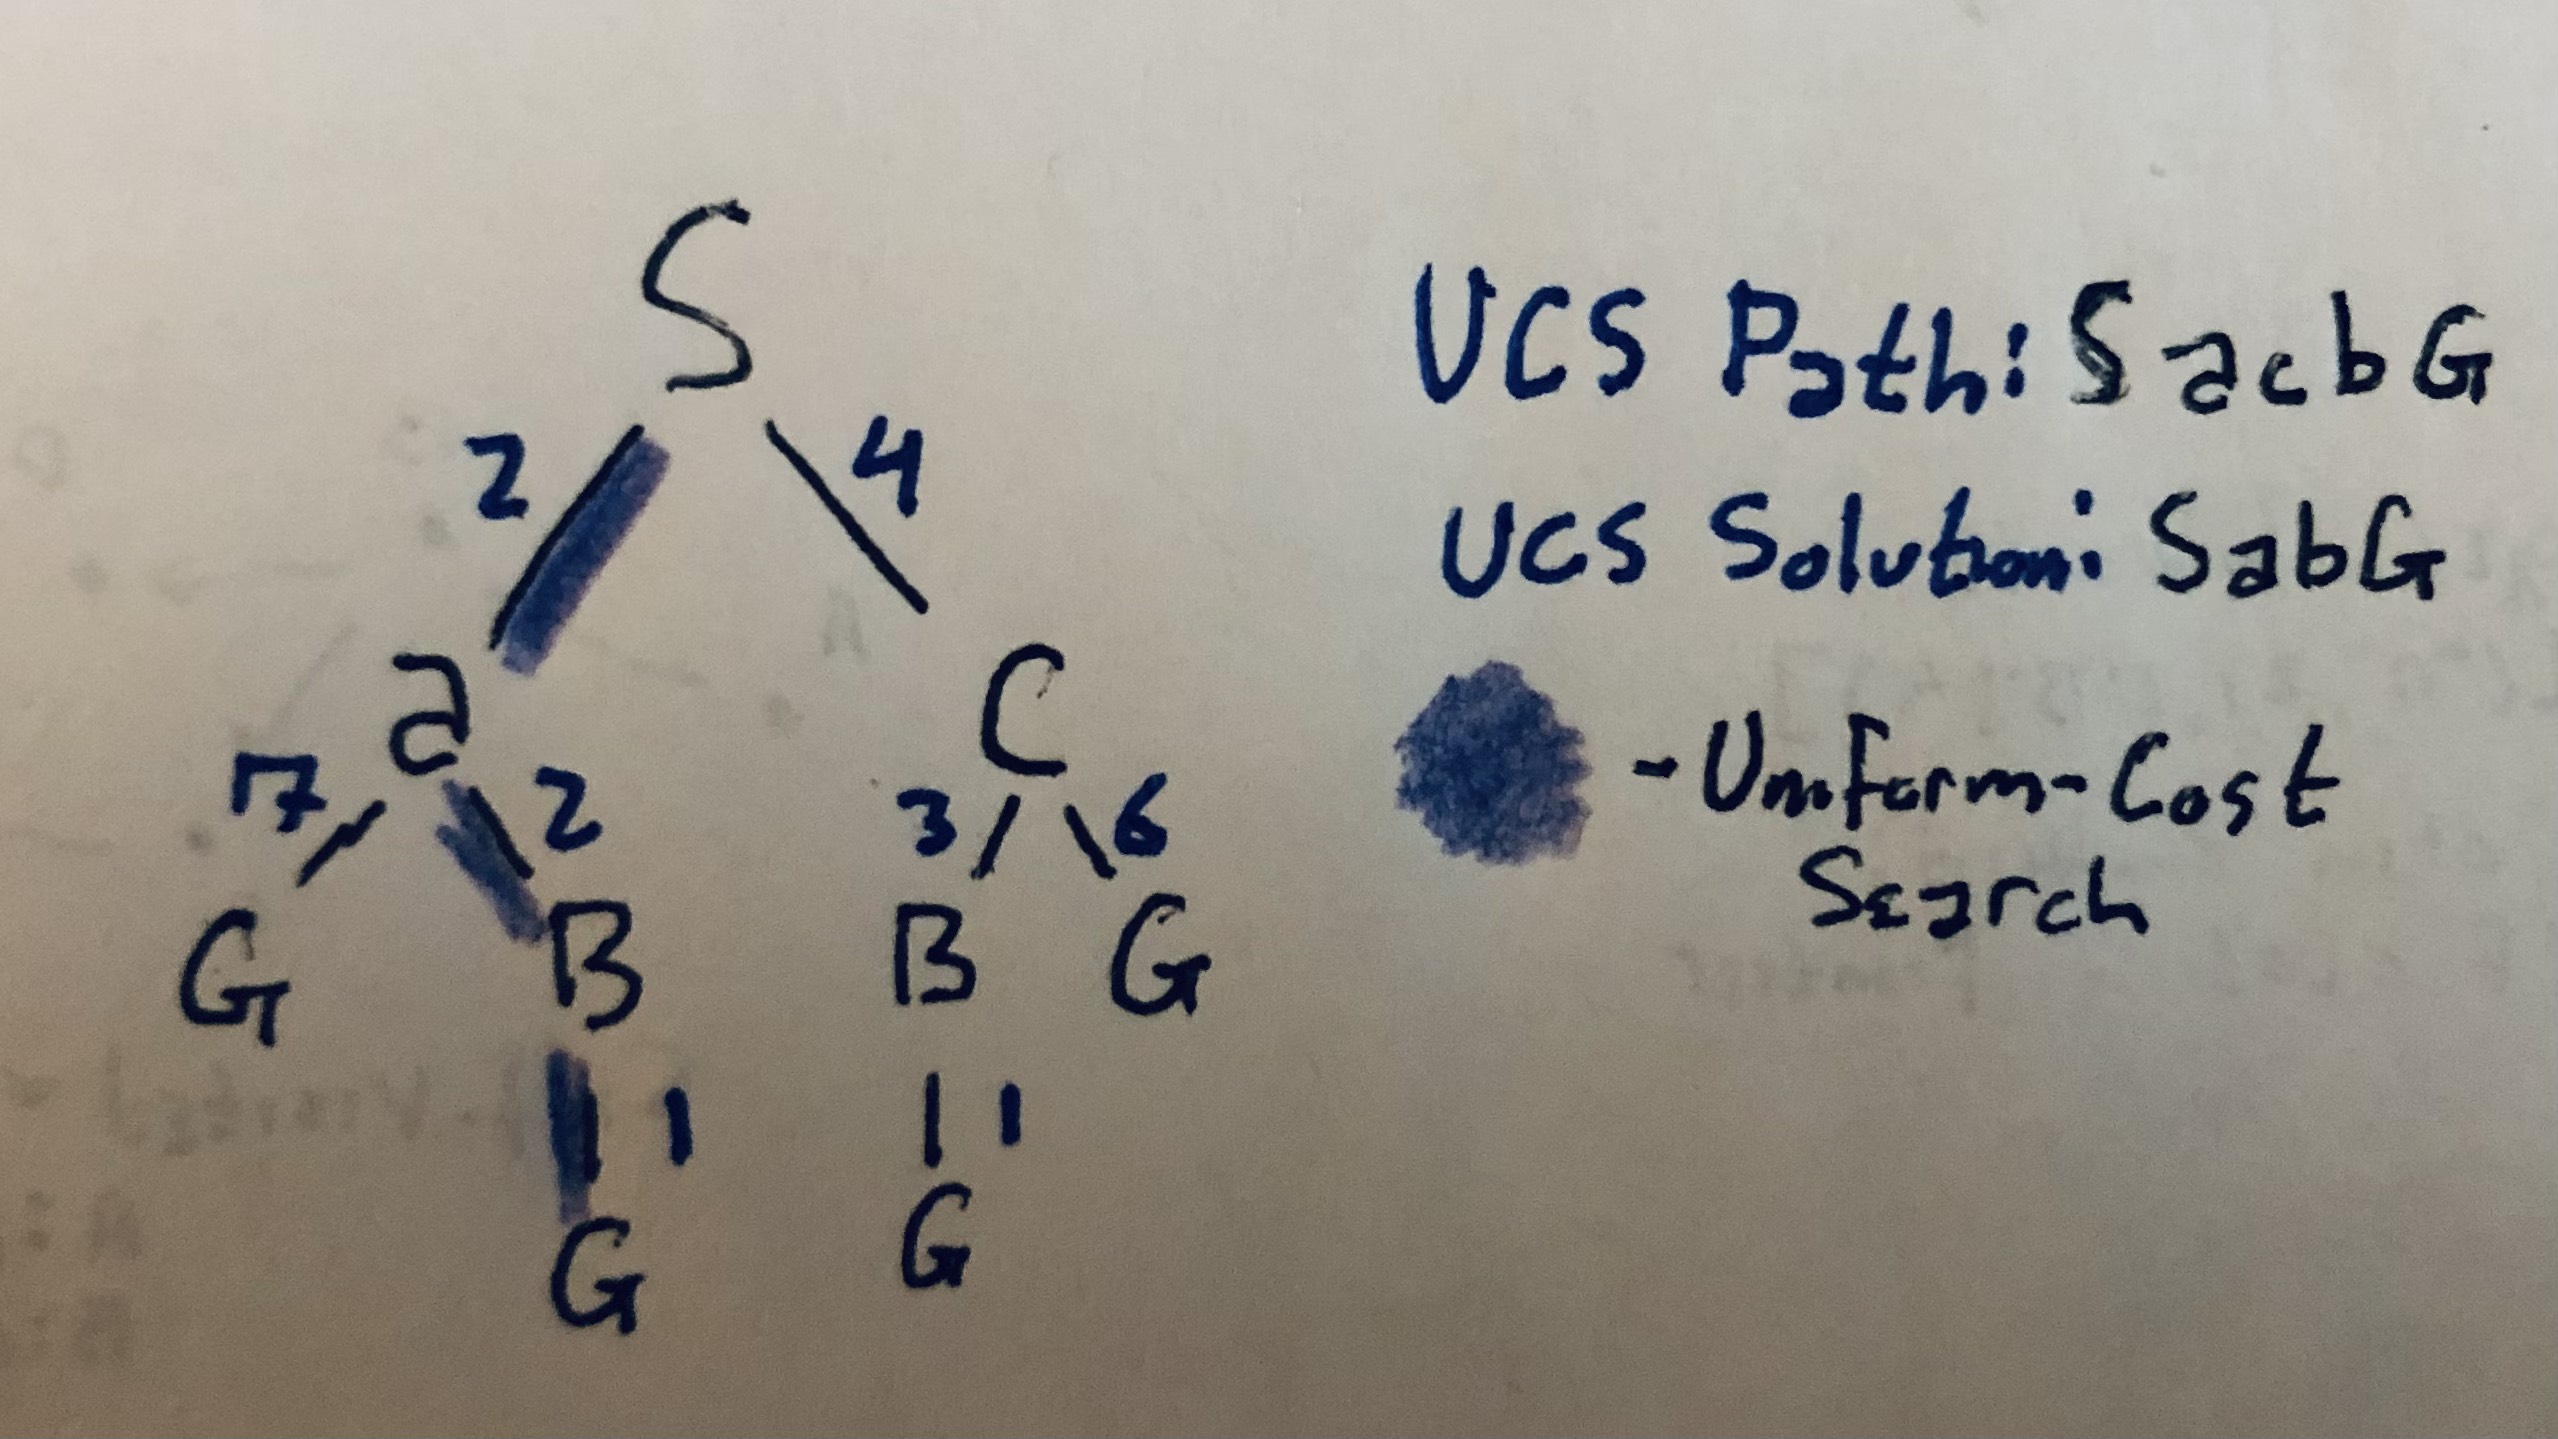 S
2 4
a C
7 2 3 6
G B B G
1 1
G G
UCS Path: S a c b G
UCS Solution: S a b G
- Uniform-Cost
Search